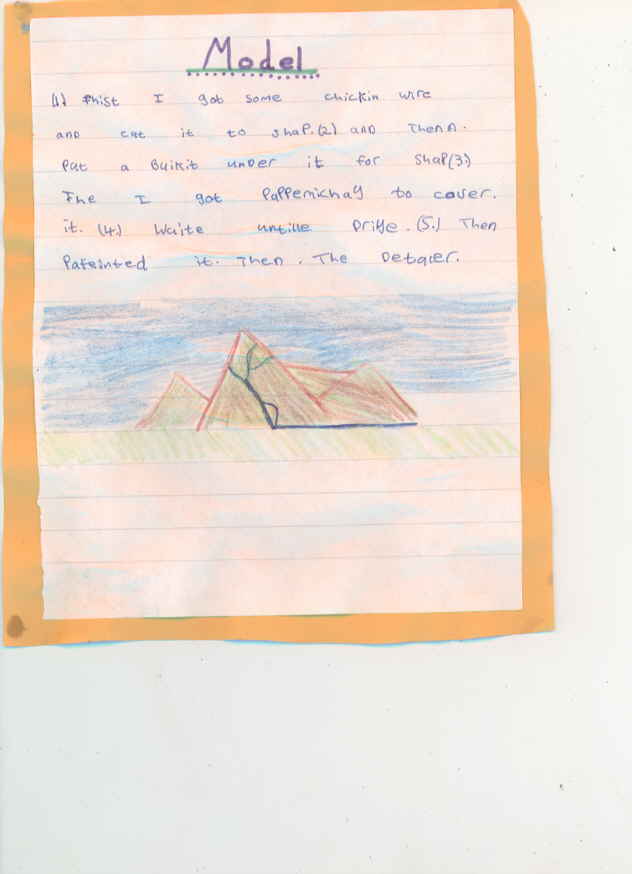 Model
(1) Fhist I got some chickin wire
and cut it to shap.(2) and Thenn.
Put a Buikit under it for Shap(3)
The I got Pappemichay to cover.
it. (4.) Waite untille Driye. (5.) Then
Pateinted it. Then. The Detaler.